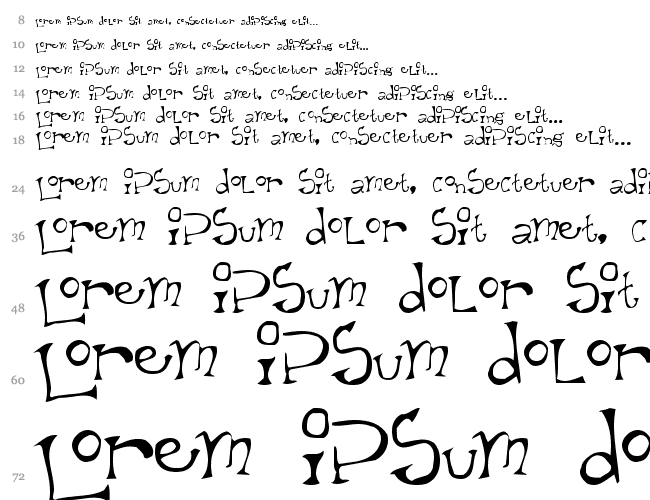 8 Lorem ipsum dolor sit amet, consectetuer adipiscing elit...
10 Lorem ipsum dolor sit amet, consectetuer adipiscing elit...
12 Lorem ipsum dolor sit amet, consectetuer adipiscing elit...
14 Lorem ipsum dolor sit amet, consectetuer adipiscing elit...
16 Lorem ipsum dolor sit amet, consectetuer adipiscing elit...
18 Lorem ipsum dolor sit amet, consectetuer adipiscing elit...
24 Lorem ipsum dolor sit amet, consectetuer adi
36 Lorem ipsum dolor sit amet, c
48 Lorem ipsum dolor sit
60 Lorem ipsum dolor
72 Lorem ipsum do